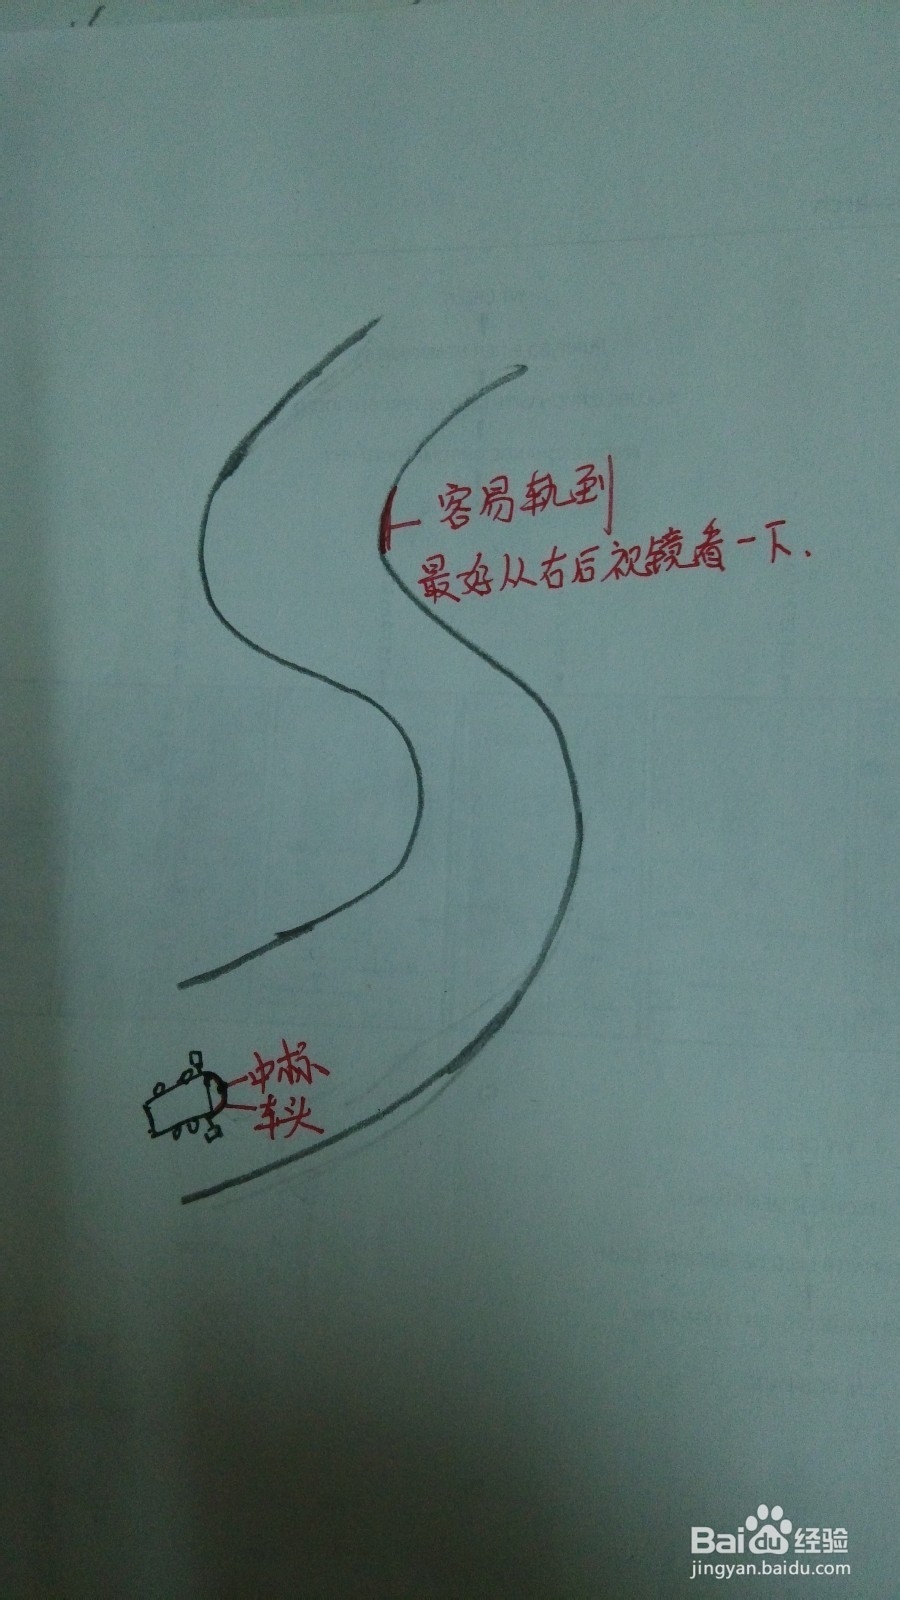 容易轧到
最好从右后视镜看一下.
中标
车头
Baidu经验
jingyan.baidu.com